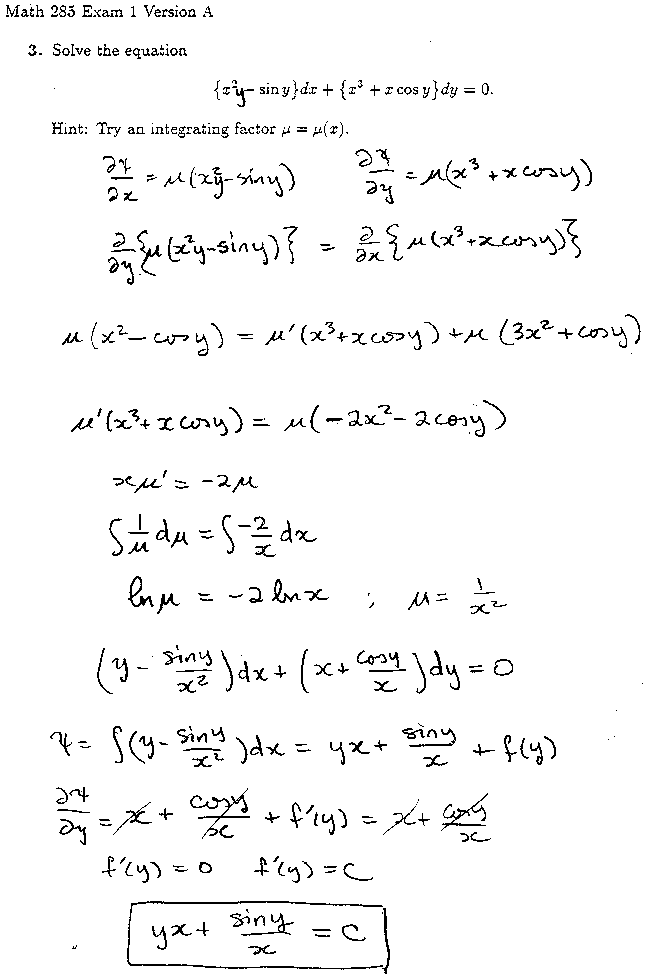 Math 285 Exam 1 Version A
3. Solve the equation
{x²y − sin y}dx + {x³ + x cos y}dy = 0.
Hint: Try an integrating factor μ = μ(x).
∂ψ/∂x = μ(x²y − siny)    ∂ψ/∂y = μ(x³ + x cosy)
∂/∂y {μ(x²y − siny)} = ∂/∂x {μ(x³ + x cosy)}
μ(x² − cosy) = μ'(x³ + x cosy) + μ(3x² + cosy)
μ'(x³ + x cosy) = μ(−2x² − 2cosy)
xμ' = −2μ
∫ 1/μ dμ = ∫ −2/x dx
ln μ = −2 ln x ; μ = 1/x²
(y − siny/x²)dx + (x + cosy/x)dy = 0
ψ = ∫(y − siny/x²)dx = yx + siny/x + f(y)
∂ψ/∂y = x + cosy/x + f'(y) = x + cosy/x
f'(y) = 0    f'(y) = C
yx + siny/x = C